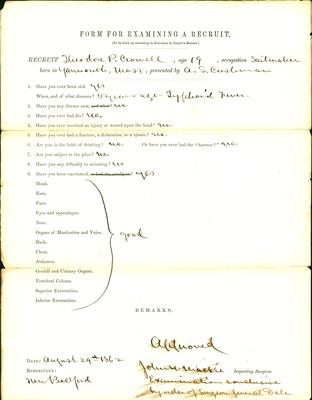 FORM FOR EXAMINING A RECRUIT,
RECRUIT Theodore P. Crowell, age 19, occupation Sailmaker
born in Yarmouth, Mass, presented by A. S. Cushman
1. Have you ever been sick yes
When, and of what disease? 5 years ago - Typhoid Fever.
2. Have you any disease now, no.
3. Have you ever had fits? no.
4. Have you ever received an injury or wound upon the head? no.
5. Have you ever had a fracture, a dislocation, or a sprain? no.
6. Are you in the habit of drinking? no. Or have you ever had the "horrors?" no.
7. Are you subject to the piles? no.
8. Have you any difficulty in urinating? no
9. Have you been vaccinated, yes
Head.
Ears.
Face.
Eyes and appendages.
Nose.
Organs of Mastication and Voice.
Neck.
Chest.
Abdomen.
Genital and Urinary Organs.
Vertebral Column.
Superior Extremities.
Inferior Extremities.
good
REMARKS.
Approved
DATE: August 29th 1862
John H. Mackie Inspecting Surgeon.
RENDEZVOUS:
New Bedford
Examination conclusive
by order of Surgeon General Dale